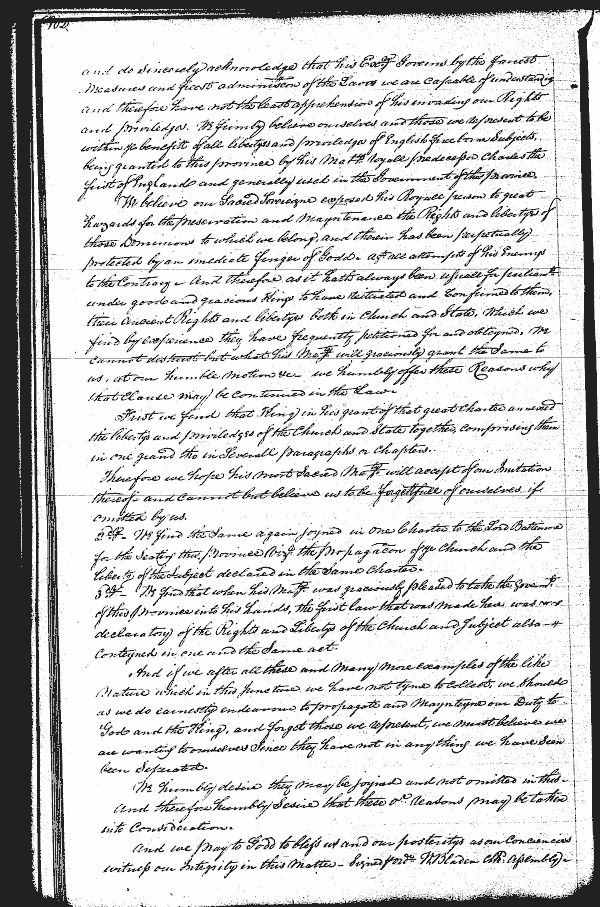 and do sincerely acknowledge that his Excy Governs by the fairest
Measures and freest administcon of the Laws we are Capable of understanding
and therefore have not the least apprehension of his invading our Rights
and priviledges. We firmly believe ourselves and those we represent to be
within ye benefits of all libertys and priviledges of English free borne Subjects,
being granted to this province by his Matys Royall predecessor Charles the
first of England and generally used in the Government of this province.
We believe our Sacred Sovereigne exposed his Royall person to great
hazards for the preservation and Mayntenance the Rights and libertys of
those Dominions to which we belong, and therein has been perpetually
protected by an imediate finger of Godd. agt all attempts of his Enemys
to the Contrary. And therefore as it hath always been usuall for
under good and gracious Kings to have Reiterated and Confirmed to them,
their Ancient Rights and libertys both in Church and State, Which we
find by experience they have frequently petitioned for and obteyned, We
cannot distrust but what his Maty will graciously grant the Same to
us, at our humble motion &c we humbly offer these Reasons why
that Clause may be continued in the Law.
First we find that King in his grant of that great Charter annexed
the libertys and priviledges of the Church and State together, comprising them
in one grand the in Severall paragraphs or Chapters.
Therefore we hope his most Sacred Maty will accept of our Imitation
thereof and cannot but believe us to be forgettfull of ourselves if
omitted by us.
2dly We find the Same again joyned in one Charter to the Lord Baltemore
for the Seating this province Vizt the propagacon of ye Church and the
liberty of the Subject declared in the Same Charter.
3dly We find that when his Maty was graciously pleased to take the Governt
of this province into his hands, the first law that was made here was
declaratory of the Rights and Libertys of the Church and Subject also
Conteyned in one and the Same act.
And if we after all these and many more examples of the like
Nature which in this Juncture we have not tyme to Collect, we should
as we do earnestly endeavour to propagate and Maynteyne our Duty to
God and the King, and forget those we represent, we must believe we
are wanting to ourselves Since they have not in any thing we have Seen
been Seperated.
We humbly desire they may be joyned and not omitted in this.
And therefore humbly desire that these or reasons may be taken
into Consideration.
And we pray to Godd to bless us and our posteritys as our Consciences
witness our Integrity in this Matter - Signed p ordr W Bladen Clk Assembly